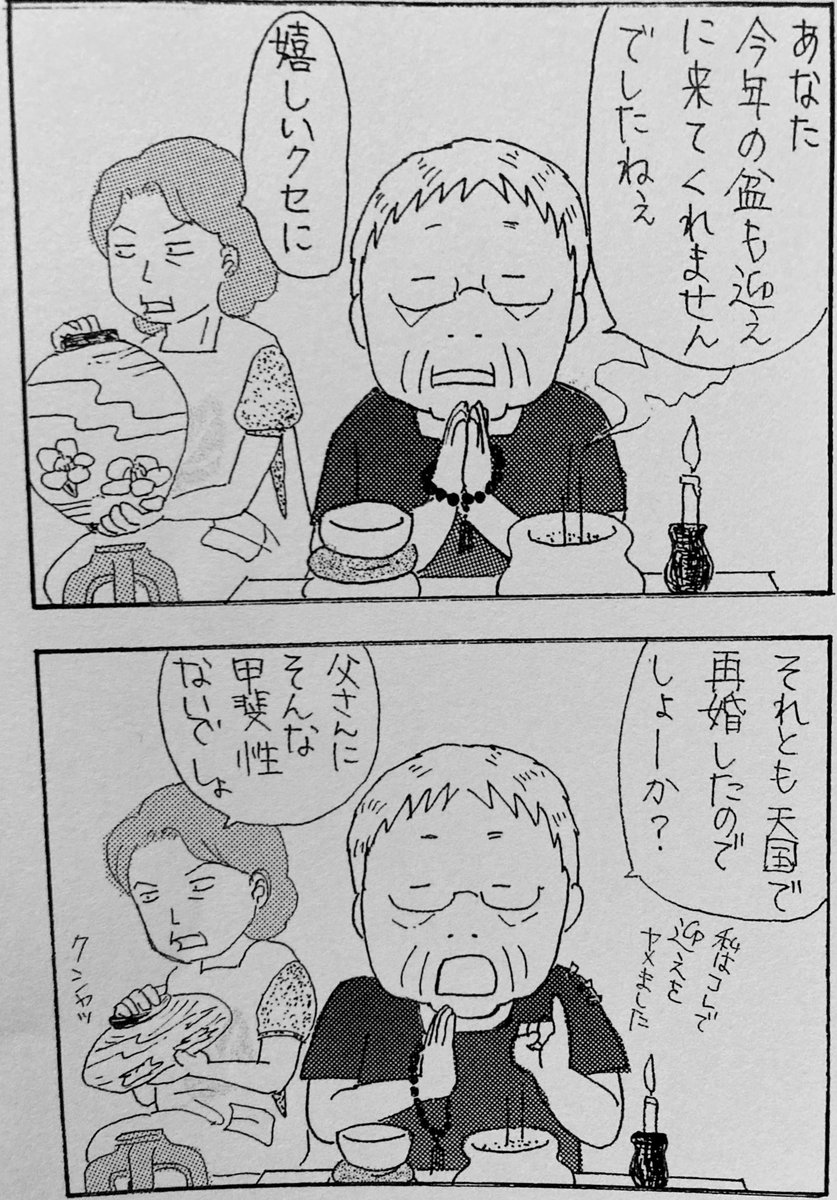 あなた
今年の盆も迎え
に来てくれません
でしたねぇ
嬉しいクセに
それとも天国で
再婚したので
しょーか？
私はコレで
迎えを
ヤメました
父さんに
そんな
甲斐性
ないでしょ
クシャッ